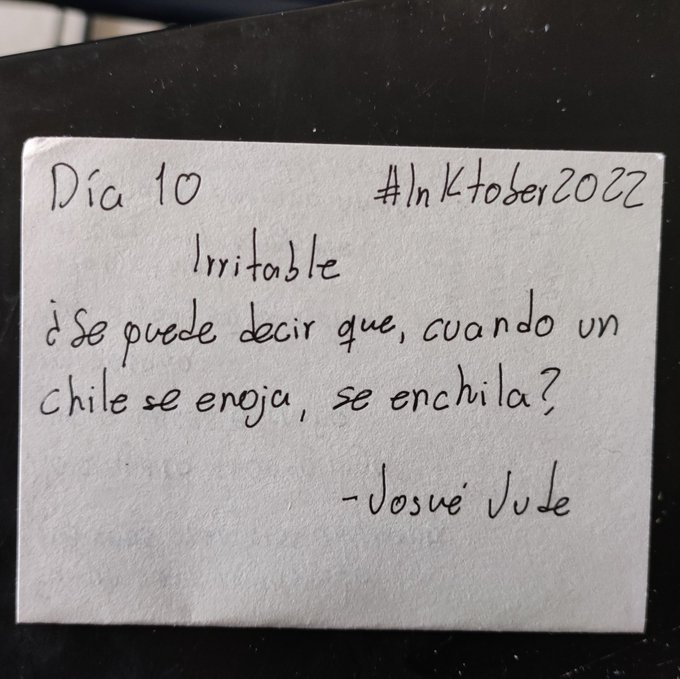 Día 10 #InKtober2022
Irritable
¿Se puede decir que, cuando un
chile se enoja, se enchila?
-Josué Jude